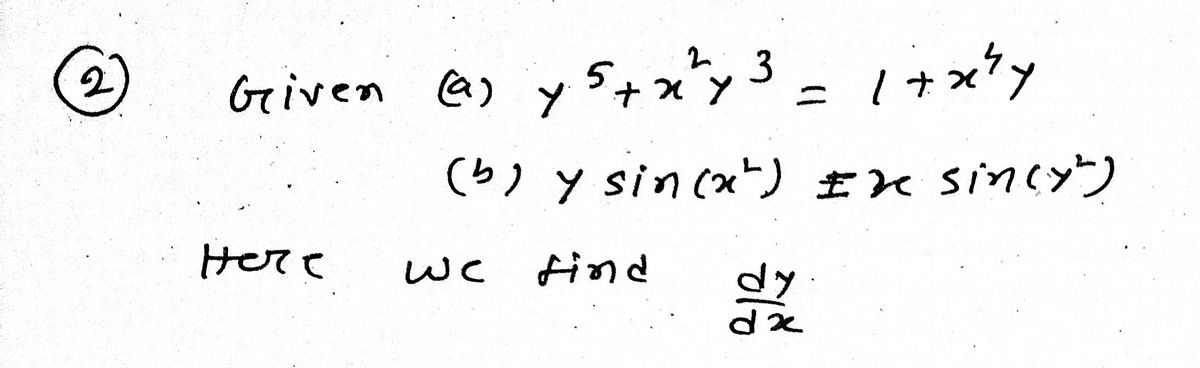 ② Given (a) y⁵ + x²y³ = 1 + x⁴y
(b) y sin(x²) = x sin(y²)
Here we find dy/dx